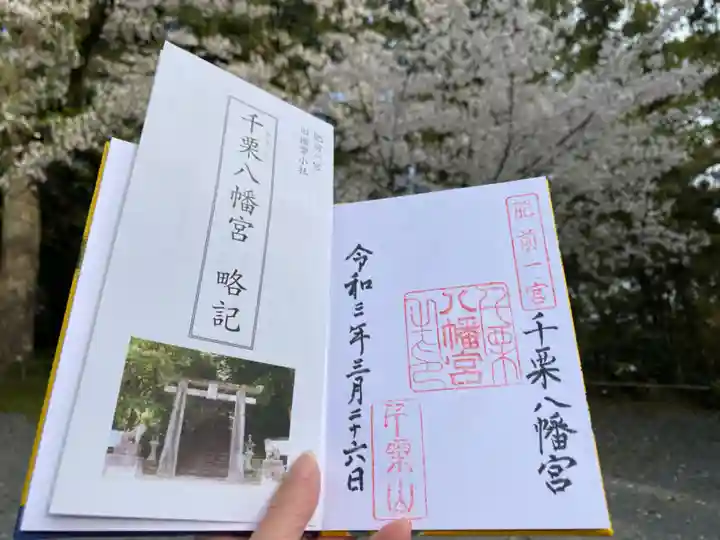 肥前一宮
旧國幣小社
千栗八幡宮 略記
肥前一宮
千栗八幡宮
千栗
八幡宮
令和三年三月二十六日
千栗山